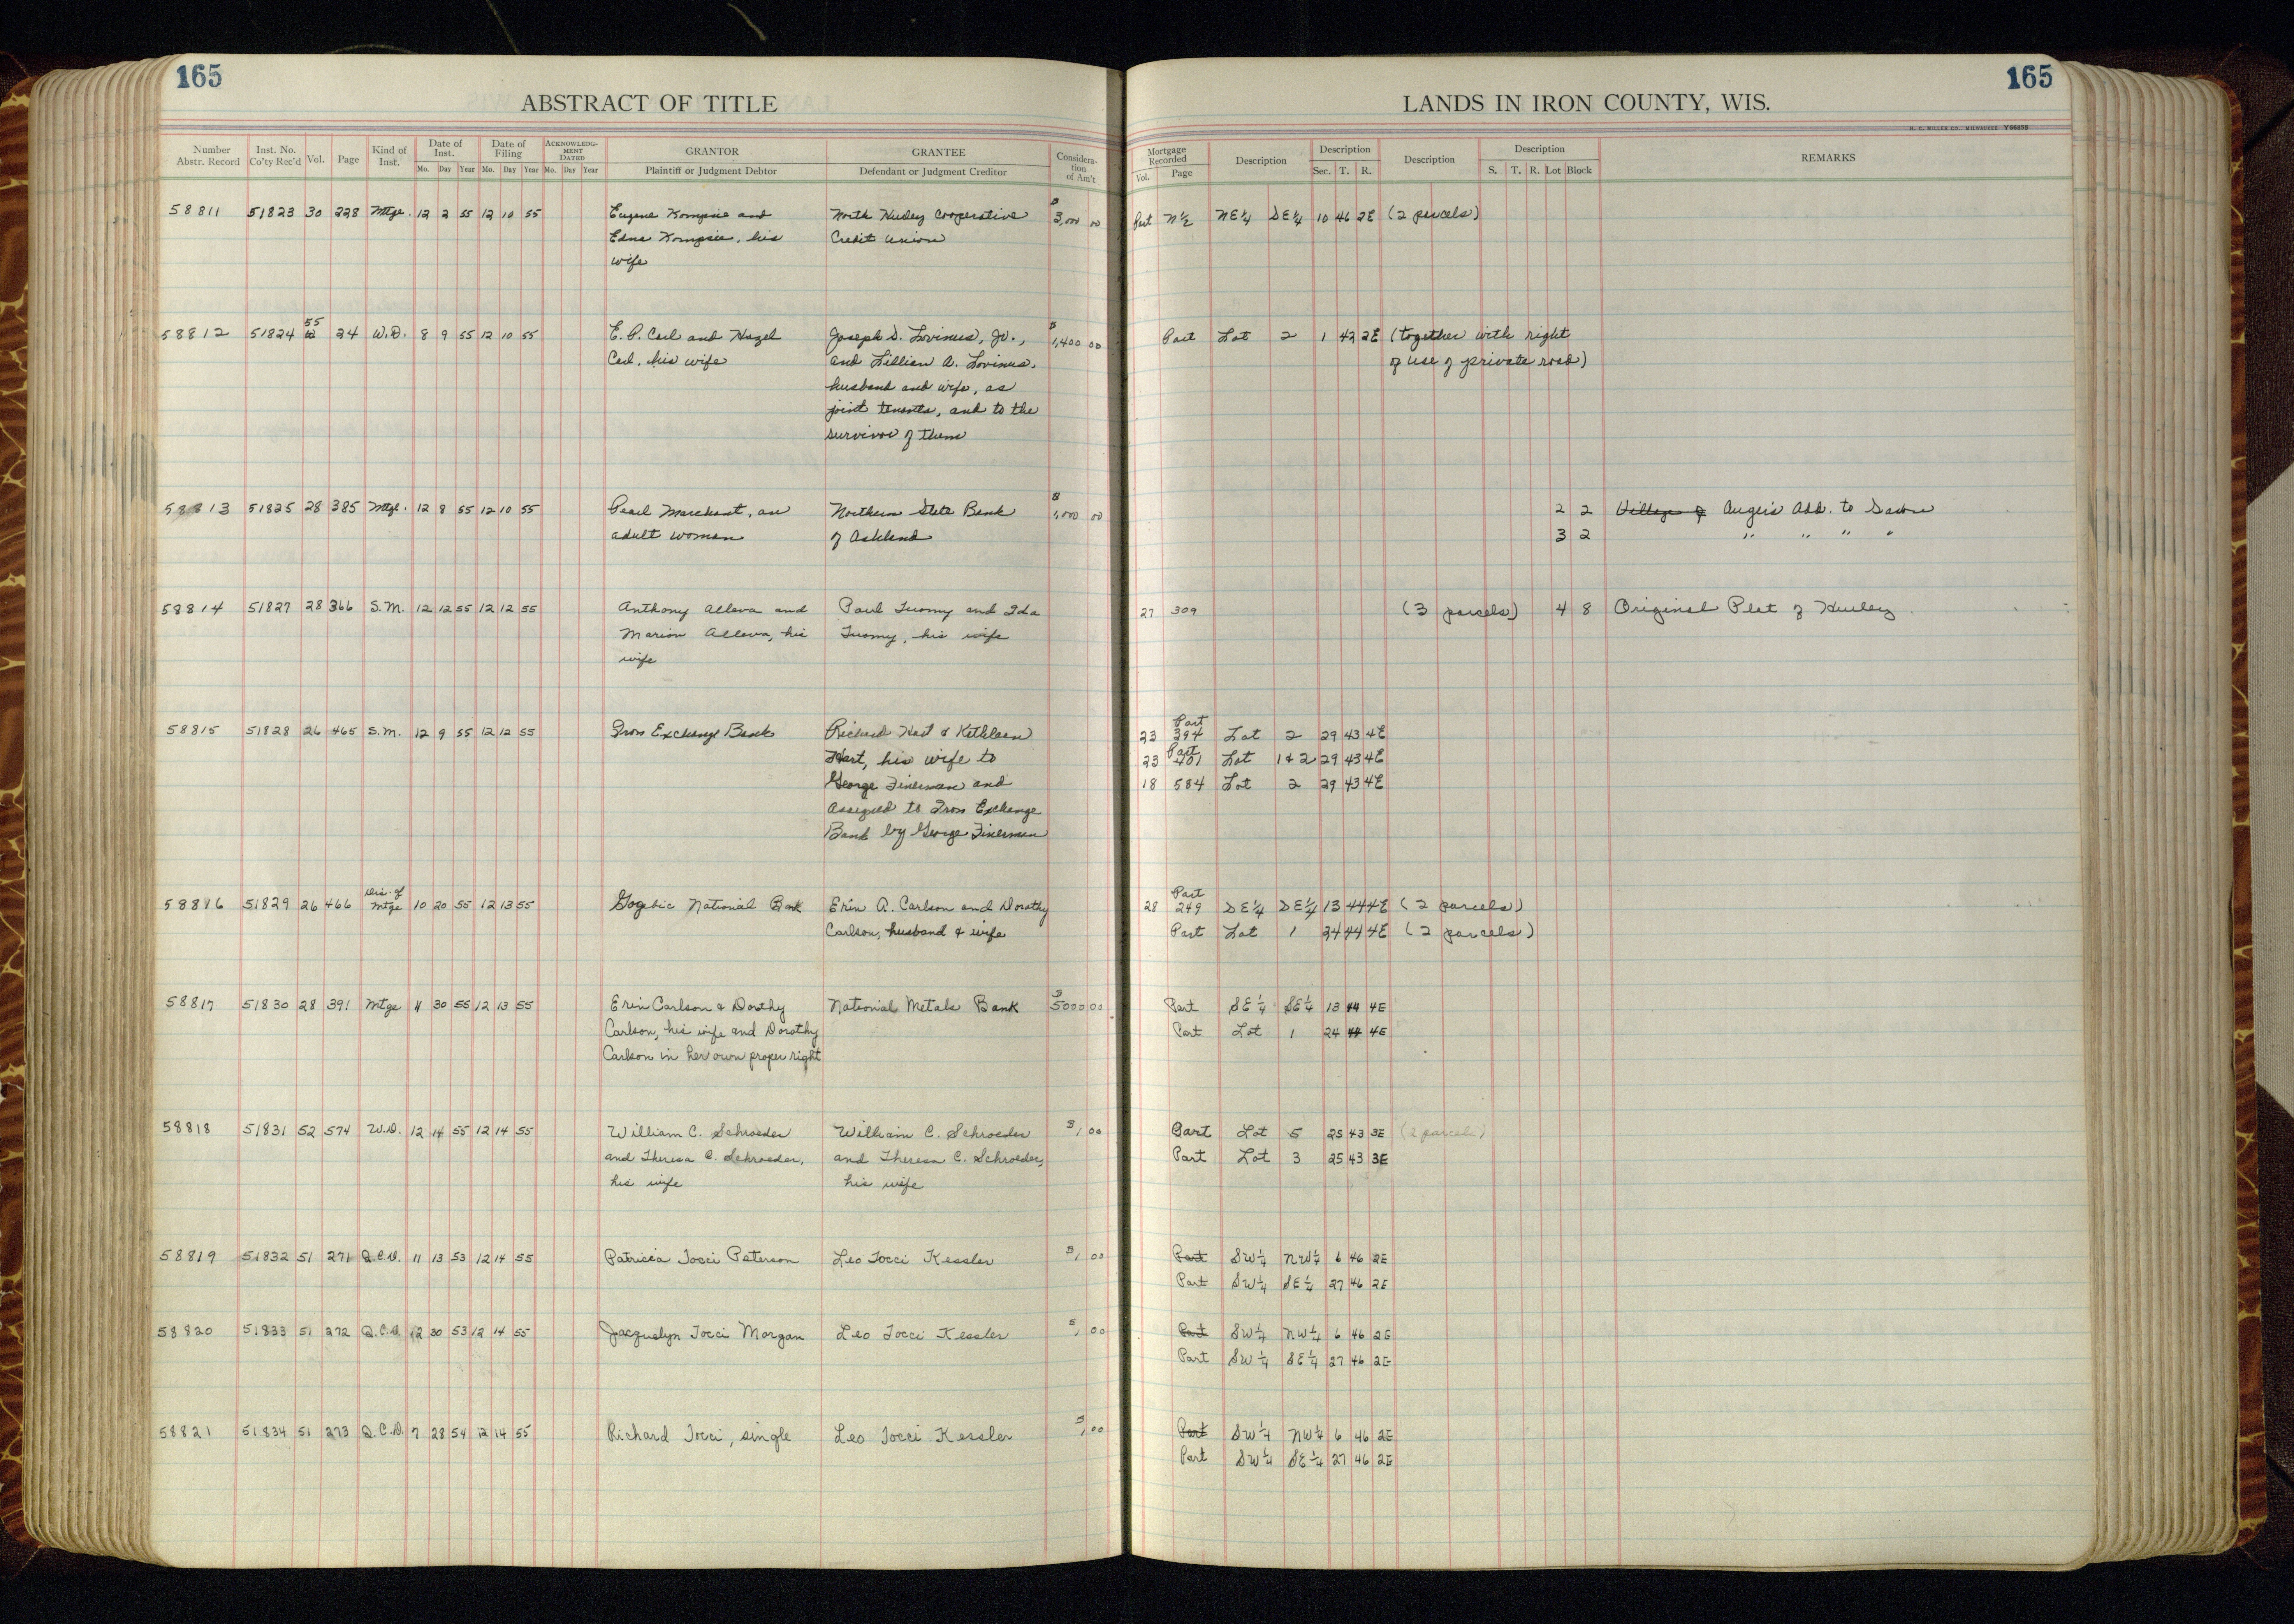 165
ABSTRACT OF TITLE
165
LANDS IN IRON COUNTY, WIS.
H. C. MILLER CO., MILWAUKEE Y86375
Number Abstr. Record | Inst. No. Co'ty Rec'd | Vol. | Page | Kind of Inst. | Date of Inst. Mo. Day Year | Date of Filing Mo. Day Year | ACKNOWLEDGMENT DATED Mo. Day Year | GRANTOR Plaintiff or Judgment Debtor | GRANTEE Defendant or Judgment Creditor | Consideration of Am't
Mortgage Recorded Vol. Page | Description | Description Sec. T. R. | Description | Description S. T. R. Lot Block | REMARKS
58811 51823 30 228 Mtge. 12 2 55 12 10 55 Eugene Kompsie and North Hurley Cooperative $3,000 00 Part N½ NE¼ SE¼ 10 46 2E (2 parcels)
Edna Kompsie, his Credit Union
wife
58812 51824 55 24 W.D. 8 9 55 12 10 55 E. P. Carl and Hazel Joseph S. Lovinus, Jr., $1,400 00 Part Lot 2 1 42 2E (together with right
Carl, his wife and Lillian A. Lovinus, of use of private road)
husband and wife, as
joint tenants, and to the
survivor of them
58813 51825 28 385 Mtge. 12 8 55 12 10 55 Pearl Marchant, an Northern State Bank $1,000 00 2 2 Village of Auger's Add. to Saxon
adult woman of Ashland 3 2 " " " "
58814 51827 28 366 S.M. 12 12 55 12 12 55 Anthony Alleva and Paul Tuomy and Ida 27 309 (3 parcels) 4 8 Original Plat of Hurley
Marion Alleva, his Tuomy, his wife
wife
58815 51828 26 465 S.M. 12 9 55 12 12 55 Iron Exchange Bank Richard Hart & Kathleen 23 Part 394 Lot 2 29 43 4E
Hart, his wife to 23 Part 401 Lot 1+2 29 43 4E
George Finerman and 18 584 Lot 2 29 43 4E
Assigned to Iron Exchange
Bank by George Finerman
58816 51829 26 466 Dis. of Mtge 10 20 55 12 13 55 Gogebic National Bank Erin A. Carlson and Dorothy 28 Part 249 SE¼ SE¼ 13 44 4E (2 parcels)
Carlson, husband & wife Part Lot 1 24 44 4E (2 parcels)
58817 51830 28 391 Mtge 11 30 55 12 13 55 Erin Carlson & Dorothy National Metals Bank $5000 00 Part SE¼ SE¼ 13 44 4E
Carlson, his wife and Dorothy Part Lot 1 24 44 4E
Carlson in her own proper right
58818 51831 52 574 W.D. 12 14 55 12 14 55 William C. Schroeder William C. Schroeder $1 00 Part Lot 5 25 43 3E (2 parcels)
and Theresa C. Schroeder, and Theresa C. Schroeder, Part Lot 3 25 43 3E
his wife his wife
58819 51832 51 271 Q.C.D. 11 13 53 12 14 55 Patricia Tocci Peterson Leo Tocci Kessler $1 00 Part SW¼ NW¼ 6 46 2E
Part SW¼ SE¼ 27 46 2E
58820 51833 51 272 Q.C.D. 12 30 53 12 14 55 Jacquelyn Tocci Morgan Leo Tocci Kessler $1 00 Part SW¼ NW¼ 6 46 2E
Part SW¼ SE¼ 27 46 2E
58821 51834 51 273 Q.C.D. 7 28 54 12 14 55 Richard Tocci, single Leo Tocci Kessler $1 00 Part SW¼ NW¼ 6 46 2E
Part SW¼ SE¼ 27 46 2E